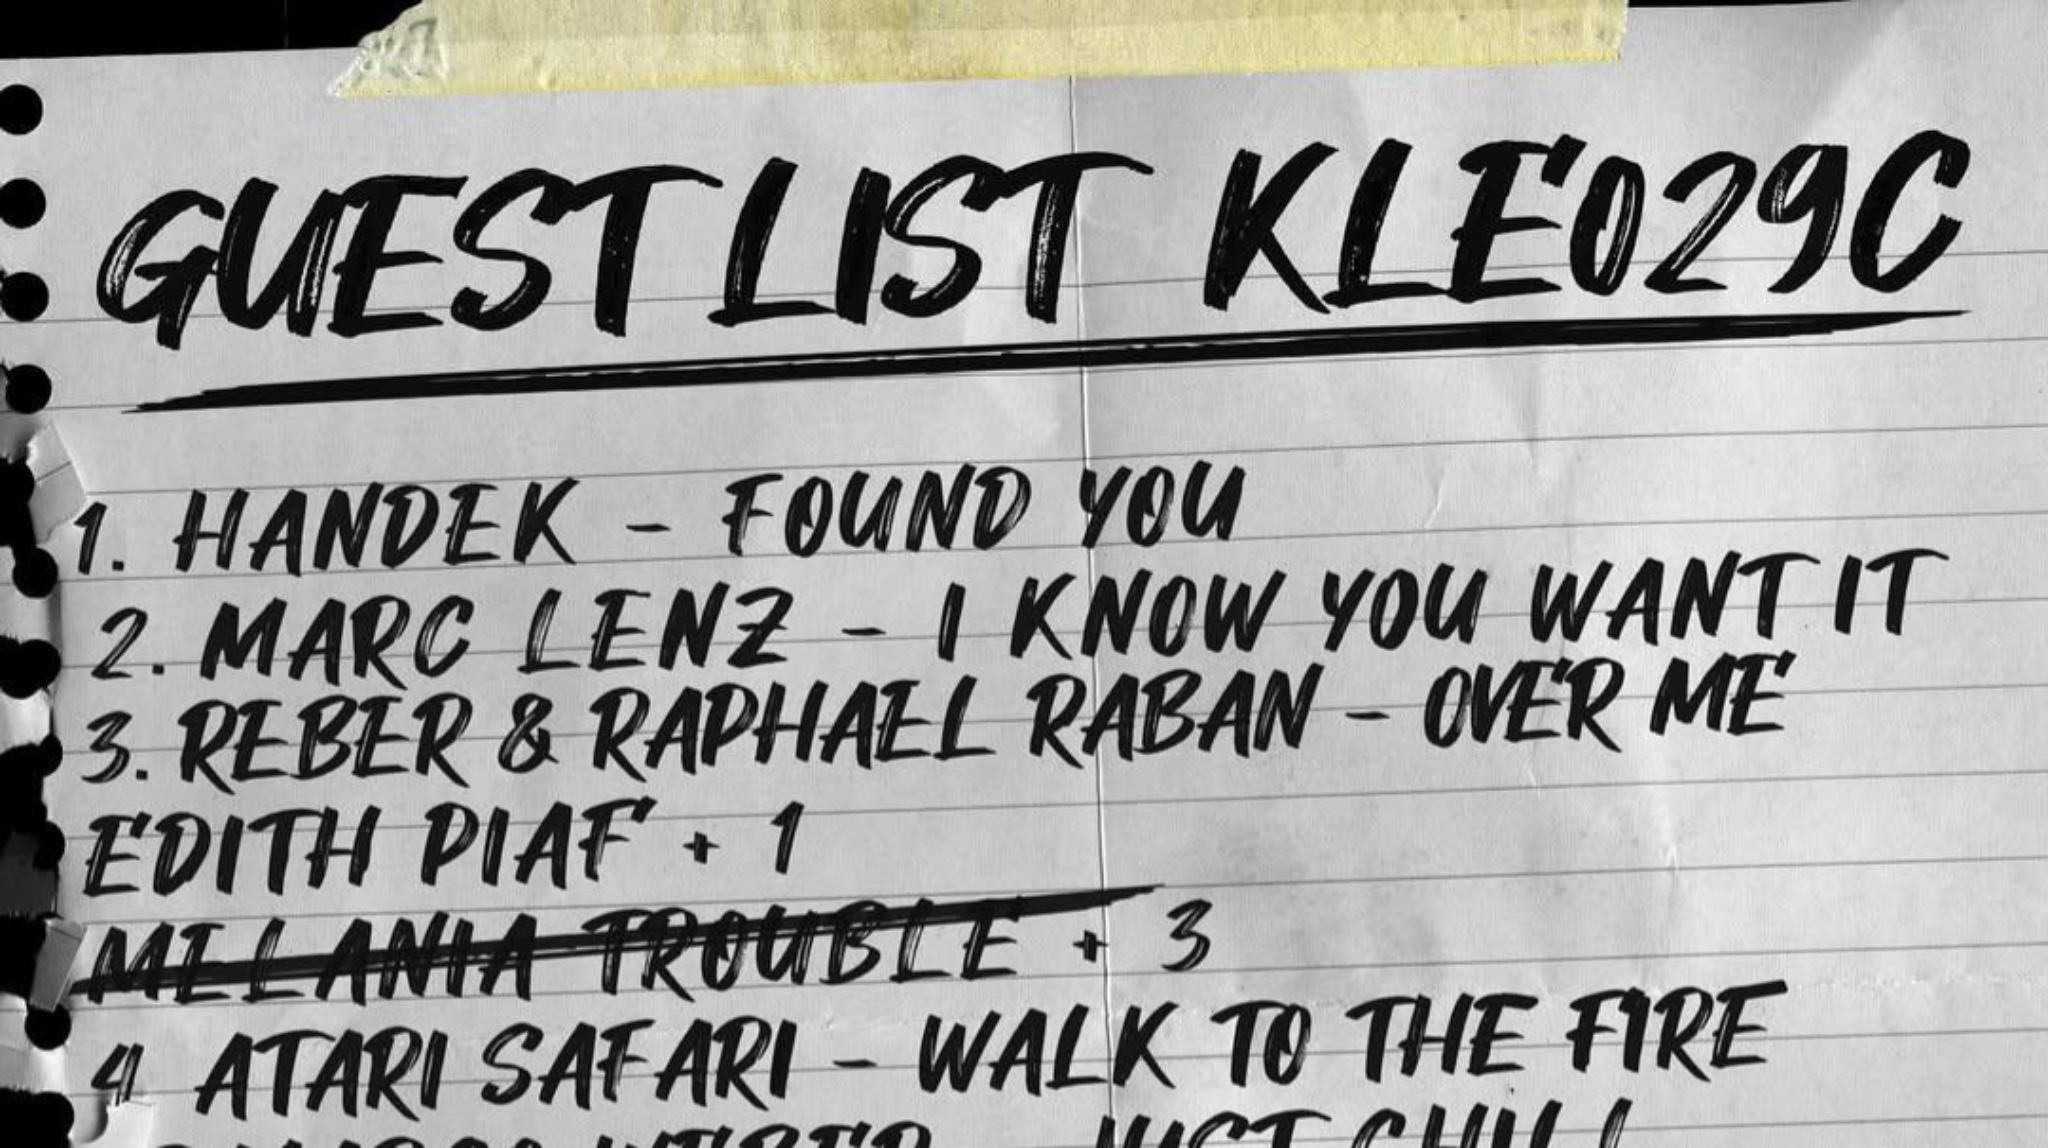 GUEST LIST KLE029C
1. HANDEK - FOUND YOU
2. MARC LENZ - I KNOW YOU WANT IT
3. REBER & RAPHAEL RABAN - OVER ME
EDITH PIAF + 1
MELANIA TROUBLE + 3
4 ATARI SAFARI - WALK TO THE FIRE
WEBER - JUST CHILL